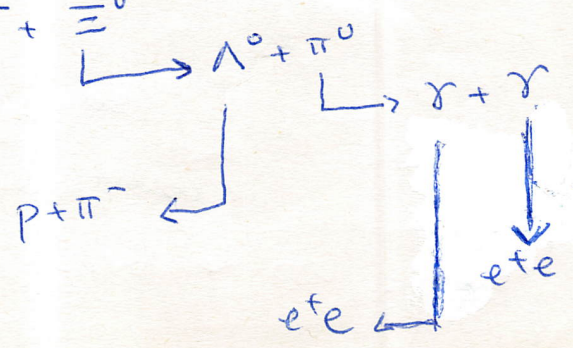 ⁻ + Ξ⁰
Λ⁰ + π⁰
γ + γ
p + π⁻
e⁺e
e⁺e